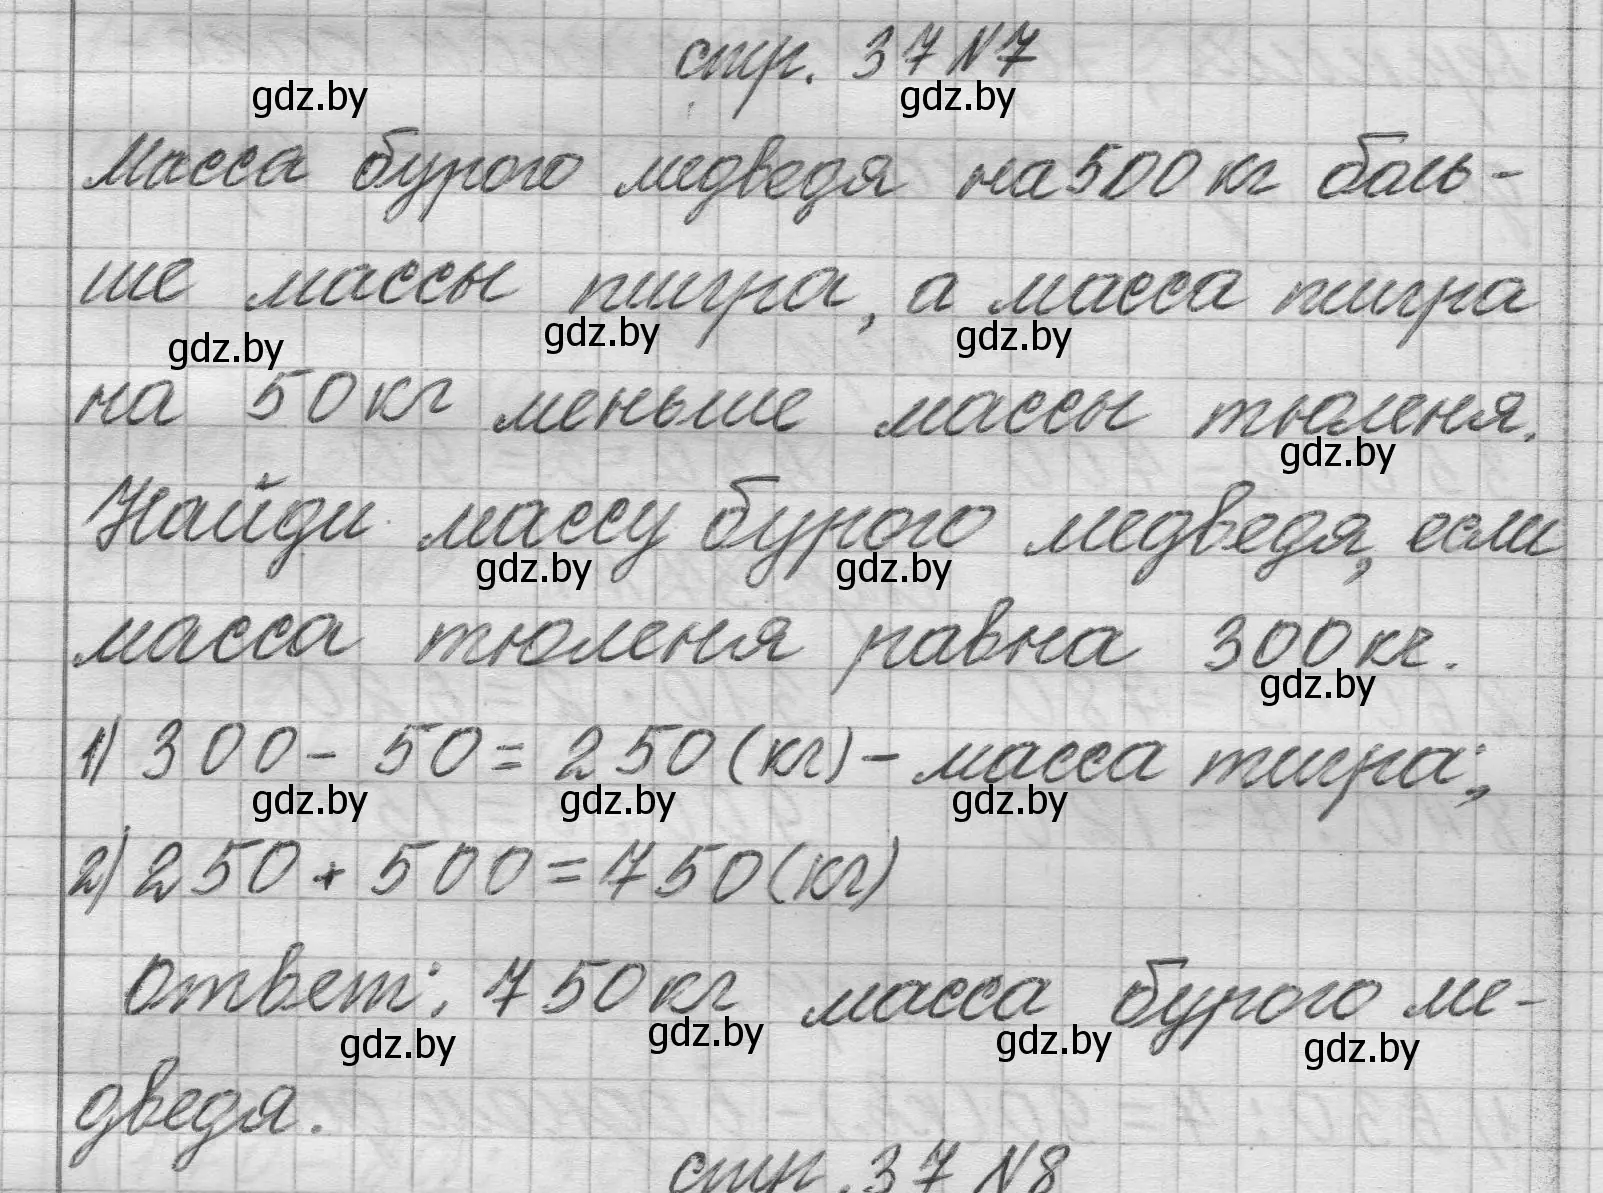 стр. 37 N7
gdz.by gdz.by
Масса бурого медведя на 500 кг боль-
ше массы тигра, а масса тигра
gdz.by gdz.by gdz.by
на 50 кг меньше массы тюленя.
gdz.by
Найди массу бурого медведя, если
gdz.by gdz.by
масса тюленя равна 300 кг.
gdz.by
1) 300 - 50 = 250 (кг) - масса тигра;
gdz.by gdz.by gdz.by
2) 250 + 500 = 750 (кг)
Ответ: 750 кг масса бурого ме-
gdz.by gdz.by gdz.by gdz.by
дведя.
стр. 37 N8